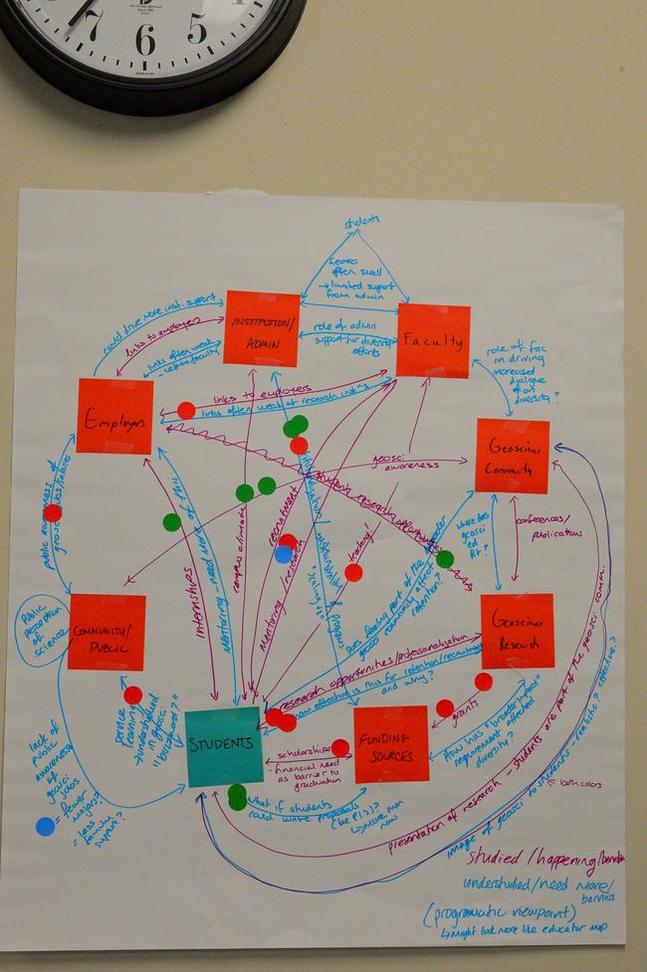 7
6
5
students
geosci
often small
→ limited support
from admin
could drive more inst. support
links to employers
links often weak
INSTITUTION/
ADMIN.
role of admin
support for diversity
efforts
Faculty
role of fac
in driving
increased
dialogue
on
diversity?
Employers
links to employers
links often weak at research inst'ns
Geoscience
Community
geosci
awareness
student research opportunities
public awareness of
geosci jobs/
internships
mentoring - need more of this
campus climate
recruitment
mentoring/research
teaching!
does feeling part of the
geosci community affect
retention?
where does
geosci
ed
fit?
conferences/
publications
public
perception
of
science
COMMUNITY/
PUBLIC
Geoscience
Research
research opportunities/professionalization
how effective is this for retention/recruitment
and why?
service
learning
→ understudied
in geosci
"bang
STUDENTS
scholarships
- financial need
as barrier to
graduation
FUNDING
SOURCES
grants
How has "broader impact"
requirement affected
diversity?
lack of
public
awareness
of
geosci
jobs
= fewer
majors?
= less
family
support?
what if students
could write proposals
(be PIs)?
↳ more
now
presentation of research - students are part of the geosci comm.
image of geosci to students - realistic? effective?
= both colors
studied/happening/
understudied/need more/
barriers
(programatic viewpoint)
↳ Might look more like educator map